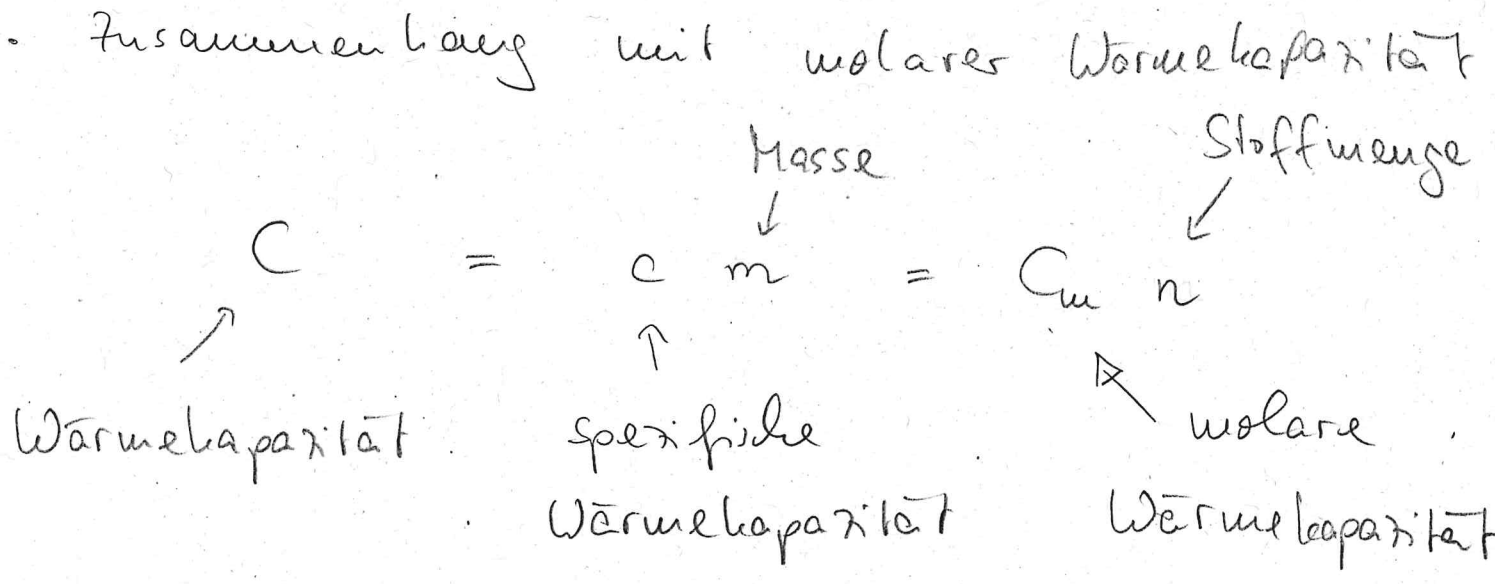 · Zusammenhang mit molarer Wärmekapazität
Masse Stoffmenge
↓ ↙
C = c m = Cm n
↗ ↑ ↖
Wärmekapazität spezifische molare
Wärmekapazität Wärmekapazität